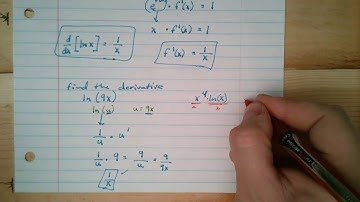 e · f⁻¹(x) = 1
x · f⁻¹(x) = 1
d/dx [ln x] = 1/x
f⁻¹(x) = 1/x
find the derivative
ln (9x)
ln (u) u = 9x
1/u · u'
1/u · 9 = 9/u = 9/9x
1/x
x⁴ · ln(x)